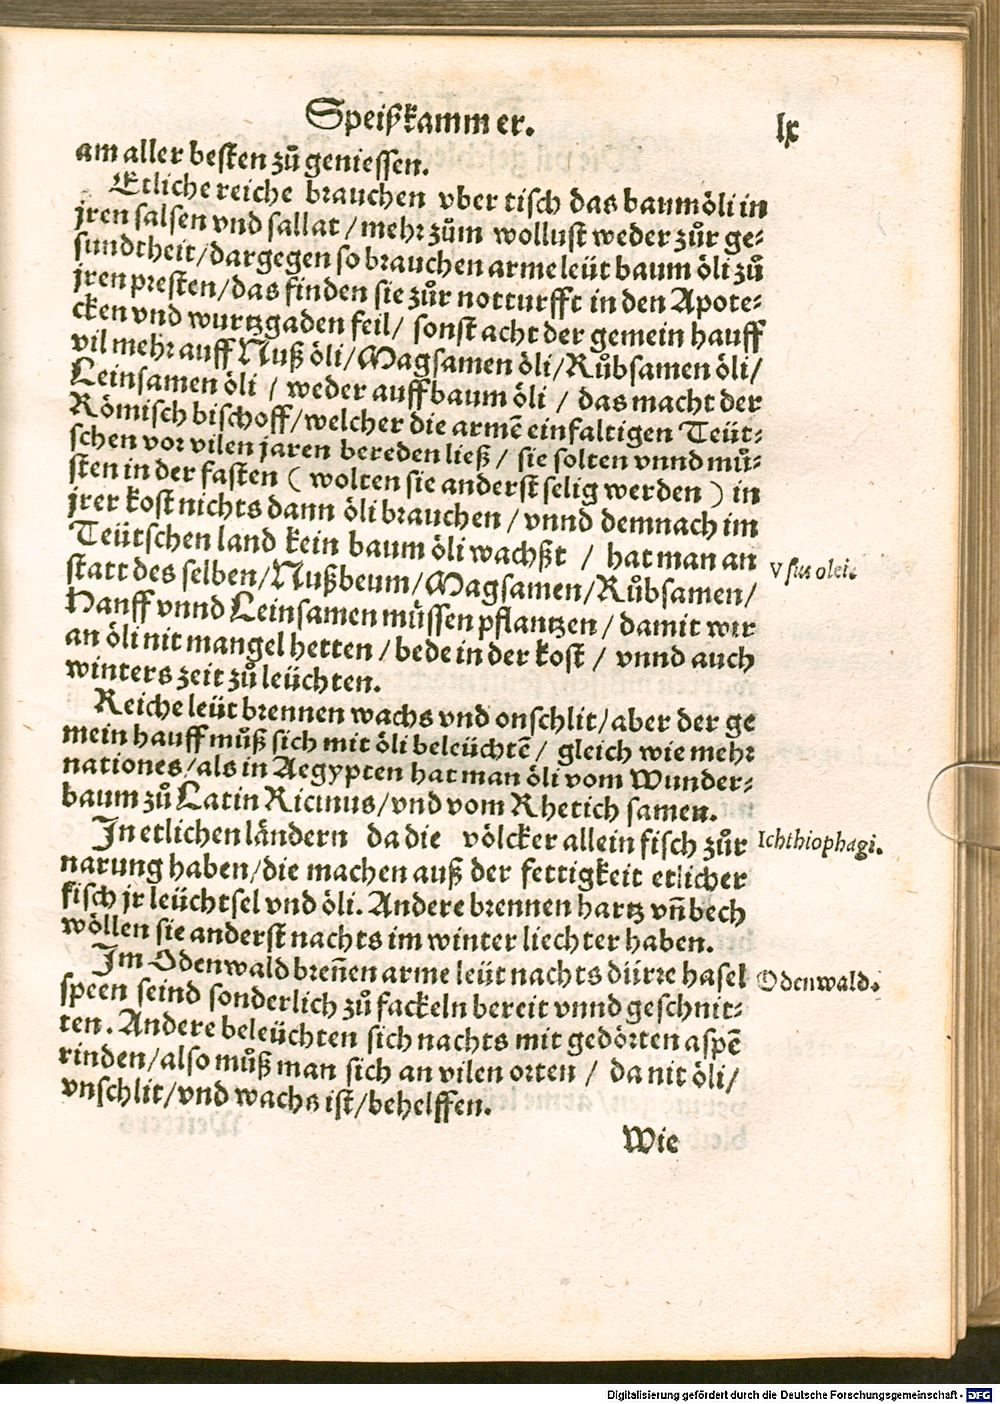 Speißkammer.
lx
am aller besten zů geniessen.
Etliche reiche brauchen vber tisch das baumöli in
jren salsen vnd sallat / mehr zům wollust weder zůr ge⸗
sundtheit/dargegen so brauchen arme leüt baum öli zů
jren presten/das finden sie zůr notturfft in den Apote⸗
cken vnd wurtzgaden feil/ sonst acht der gemein hauff
vil mehr auff Nuß öli/Magsamen öli/Růbsamen öli/
Leinsamen öli / weder auff baum öli / das macht der
Römisch bischoff/welcher die armē einfaltigen Teüt⸗
schen vor vilen jaren bereden ließ / sie solten vnnd mů⸗
sten in der fasten ( wolten sie anderst selig werden ) in
jrer kost nichts dann öli brauchen / vnnd demnach im
Teütschen land kein baum öli wachßt / hat man an
Vsus olei.
statt des selben/Nußbeum/Magsamen/Růbsamen/
Hanff vnnd Leinsamen müssen pflantzen / damit wir
an öli nit mangel hetten / bede in der kost / vnnd auch
winters zeit zů leüchten.
Reiche leüt brennen wachs vnd onschlit/aber der ge
mein hauff můß sich mit öli beleüchtē / gleich wie mehr
nationes/als in Aegypten hat man öli vom Wunder⸗
baum zů Latin Ricinus/vnd vom Rhetich samen.
In etlichen ländern da die völcker allein fisch zůr
Ichthiophagi.
narung haben/die machen auß der fettigkeit etlicher
fisch jr leüchtsel vnd öli. Andere brennen hartz vn̄ bech
wöllen sie anderst nachts im winter liechter haben.
Im Odenwald breñen arme leüt nachts dürre hasel
Odenwald.
speen seind sonderlich zů fackeln bereit vnnd geschnit⸗
ten. Andere beleüchten sich nachts mit gedörten aspē
rinden/also můß man sich an vilen orten / da nit öli/
vnschlit/vnd wachs ist/behelffen.
Wie
Digitalisierung gefördert durch die Deutsche Forschungsgemeinschaft - DFG